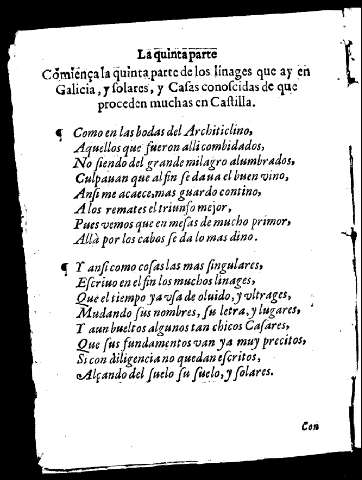 La quinta parte
Comiẽça la quinta parte de los linages que ay en
Galicia, y solares, y Casas conoscidas de que
proceden muchas en Castilla.
¶ Como en las bodas del Architiclino,
Aquellos que fueron alli combidados,
No siendo del grande milagro alumbrados,
Culpauan que al fin se daua el buen vino,
Ansi me acaece, mas guardo contino,
A los remates el triunfo mejor,
Pues vemos que en mesas de mucho primor,
Allà por los cabos se da lo mas dino.
¶ Y ansi como cosas las mas singulares,
Escriuo en el fin los muchos linages,
Que el tiempo ya vsa de oluido, y vltrages,
Mudando sus nombres, su letra, y lugares,
Y aun bueltos algunos tan chicos Casares,
Que sus fundamentos van ya muy precitos,
Si con diligencia no quedan escritos,
Alçando del suelo su suelo, y solares.
Con